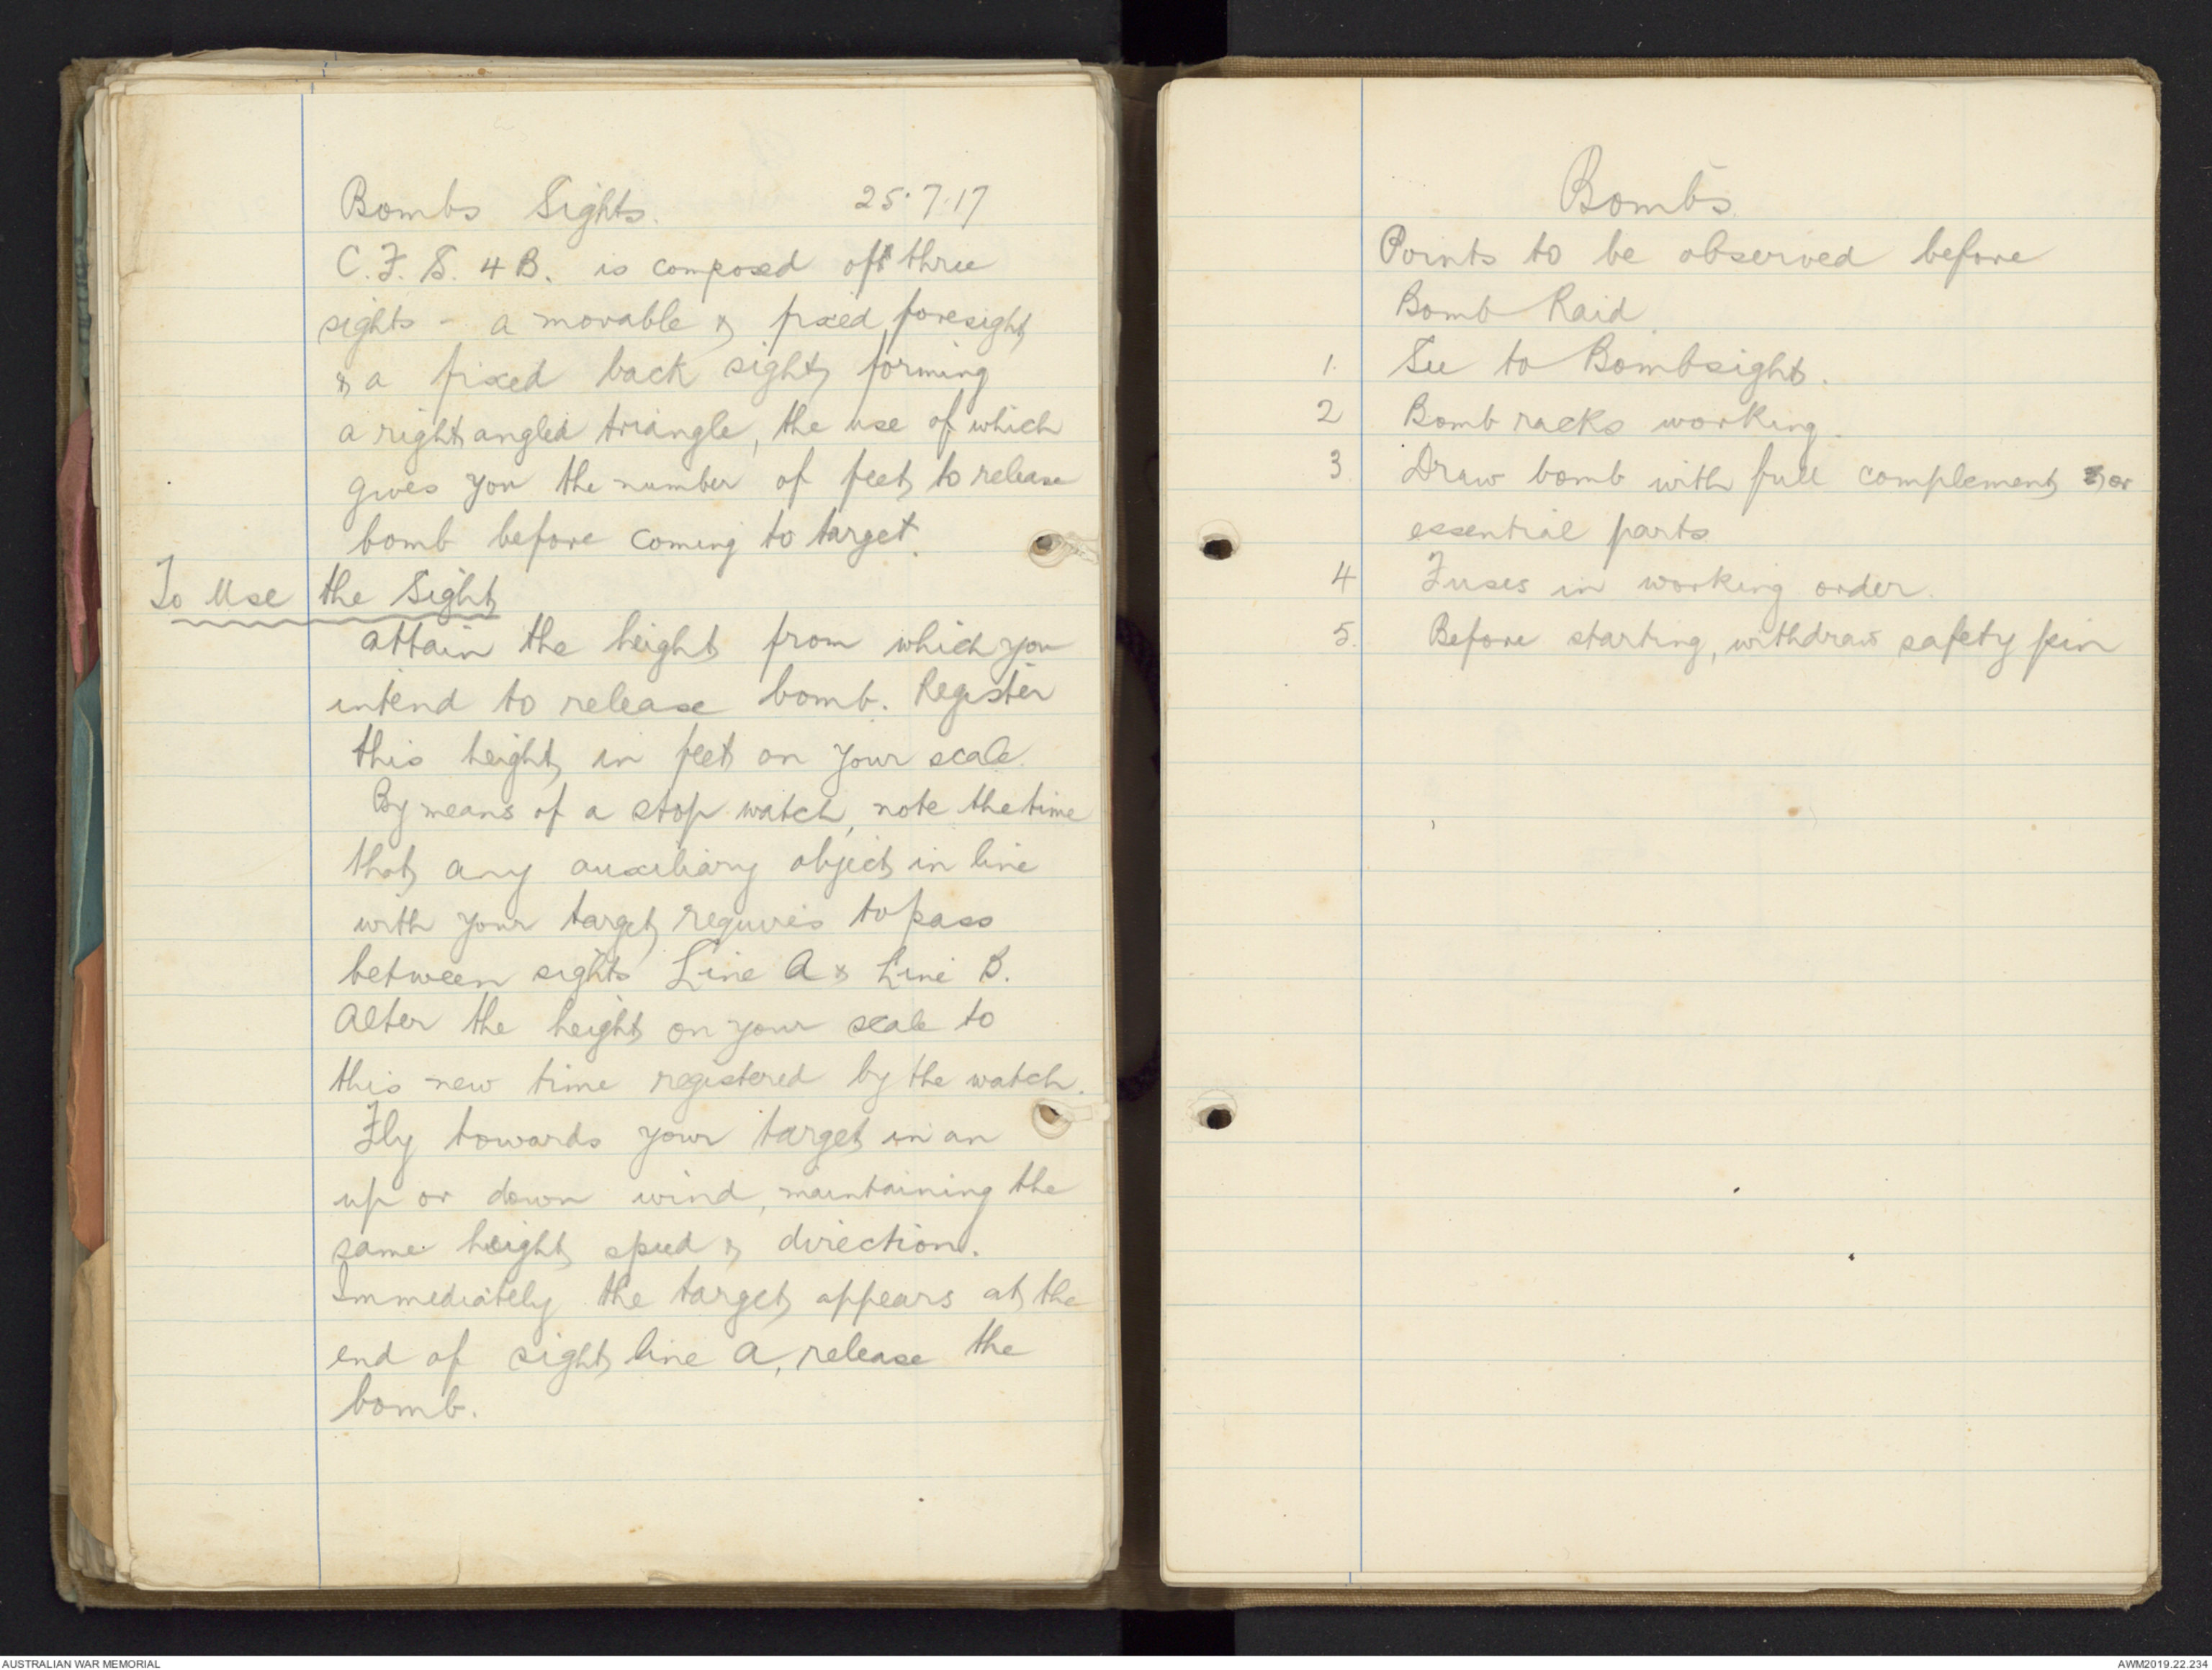 Bombs Sights. 25.7.17
C.F.S. 4B. is composed of three
sights - a movable & fixed foresight
& a fixed back sight forming
a right angled triangle, the use of which
gives you the number of feet to release
bomb before coming to target.
To Use the Sight
attain the height from which you
intend to release bomb. Register
this height in feet on your scale.
By means of a stop watch, note the time
that any auxiliary object in line
with your target requires to pass
between sights Line A & Line B.
Alter the height on your scale to
this new time registered by the watch.
Fly towards your target in an
up or down wind, maintaining the
same height speed & direction.
Immediately the target appears at the
end of sight line A, release the
bomb.
Bombs
Points to be observed before
Bomb Raid.
1. See to Bombsight.
2 Bomb racks working.
3. Draw bomb with full complement or
essential parts
4 Fuses in working order.
5. Before starting, withdraw safety pin
AUSTRALIAN WAR MEMORIAL
AWM2019.22.234